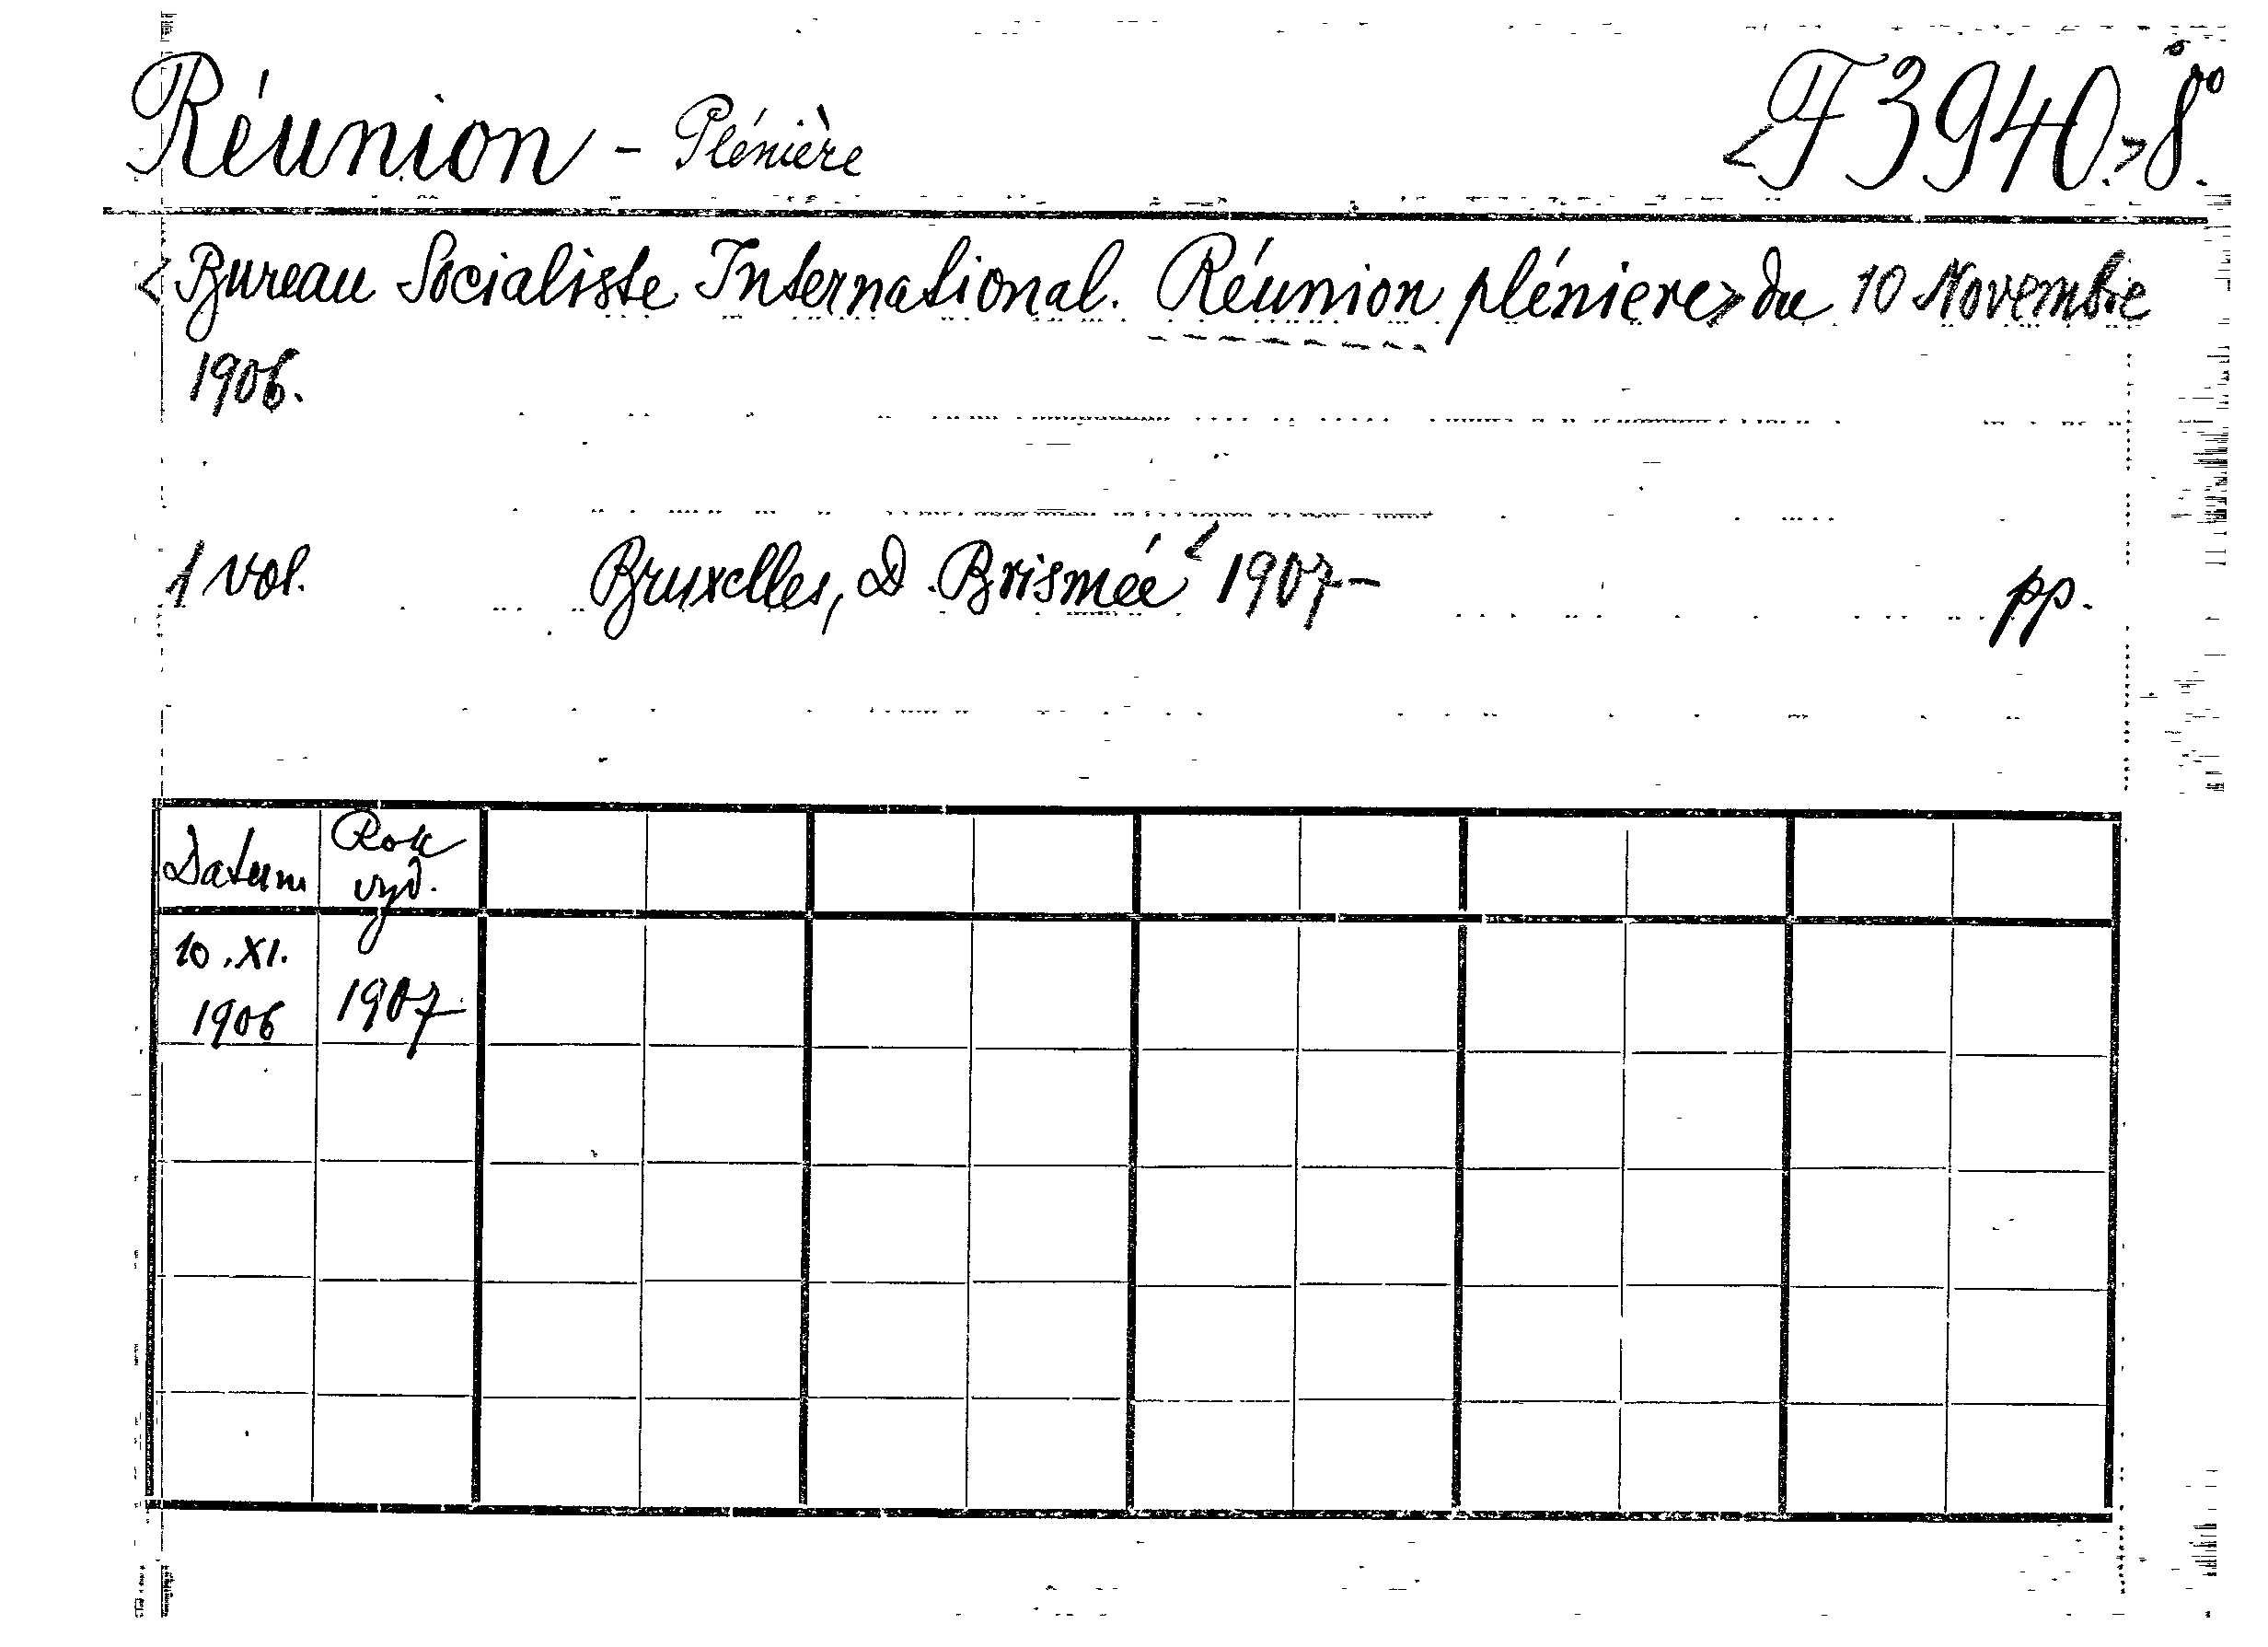 Réunion - Plénière <F 3940.> 8°.
<Bureau Socialiste International. Réunion plénière> du 10 Novembre
1906.
1 vol. Bruxelles, D. Brismée < 1907- pp.
Datum Rok vyd.
10.XI. 1906 1907